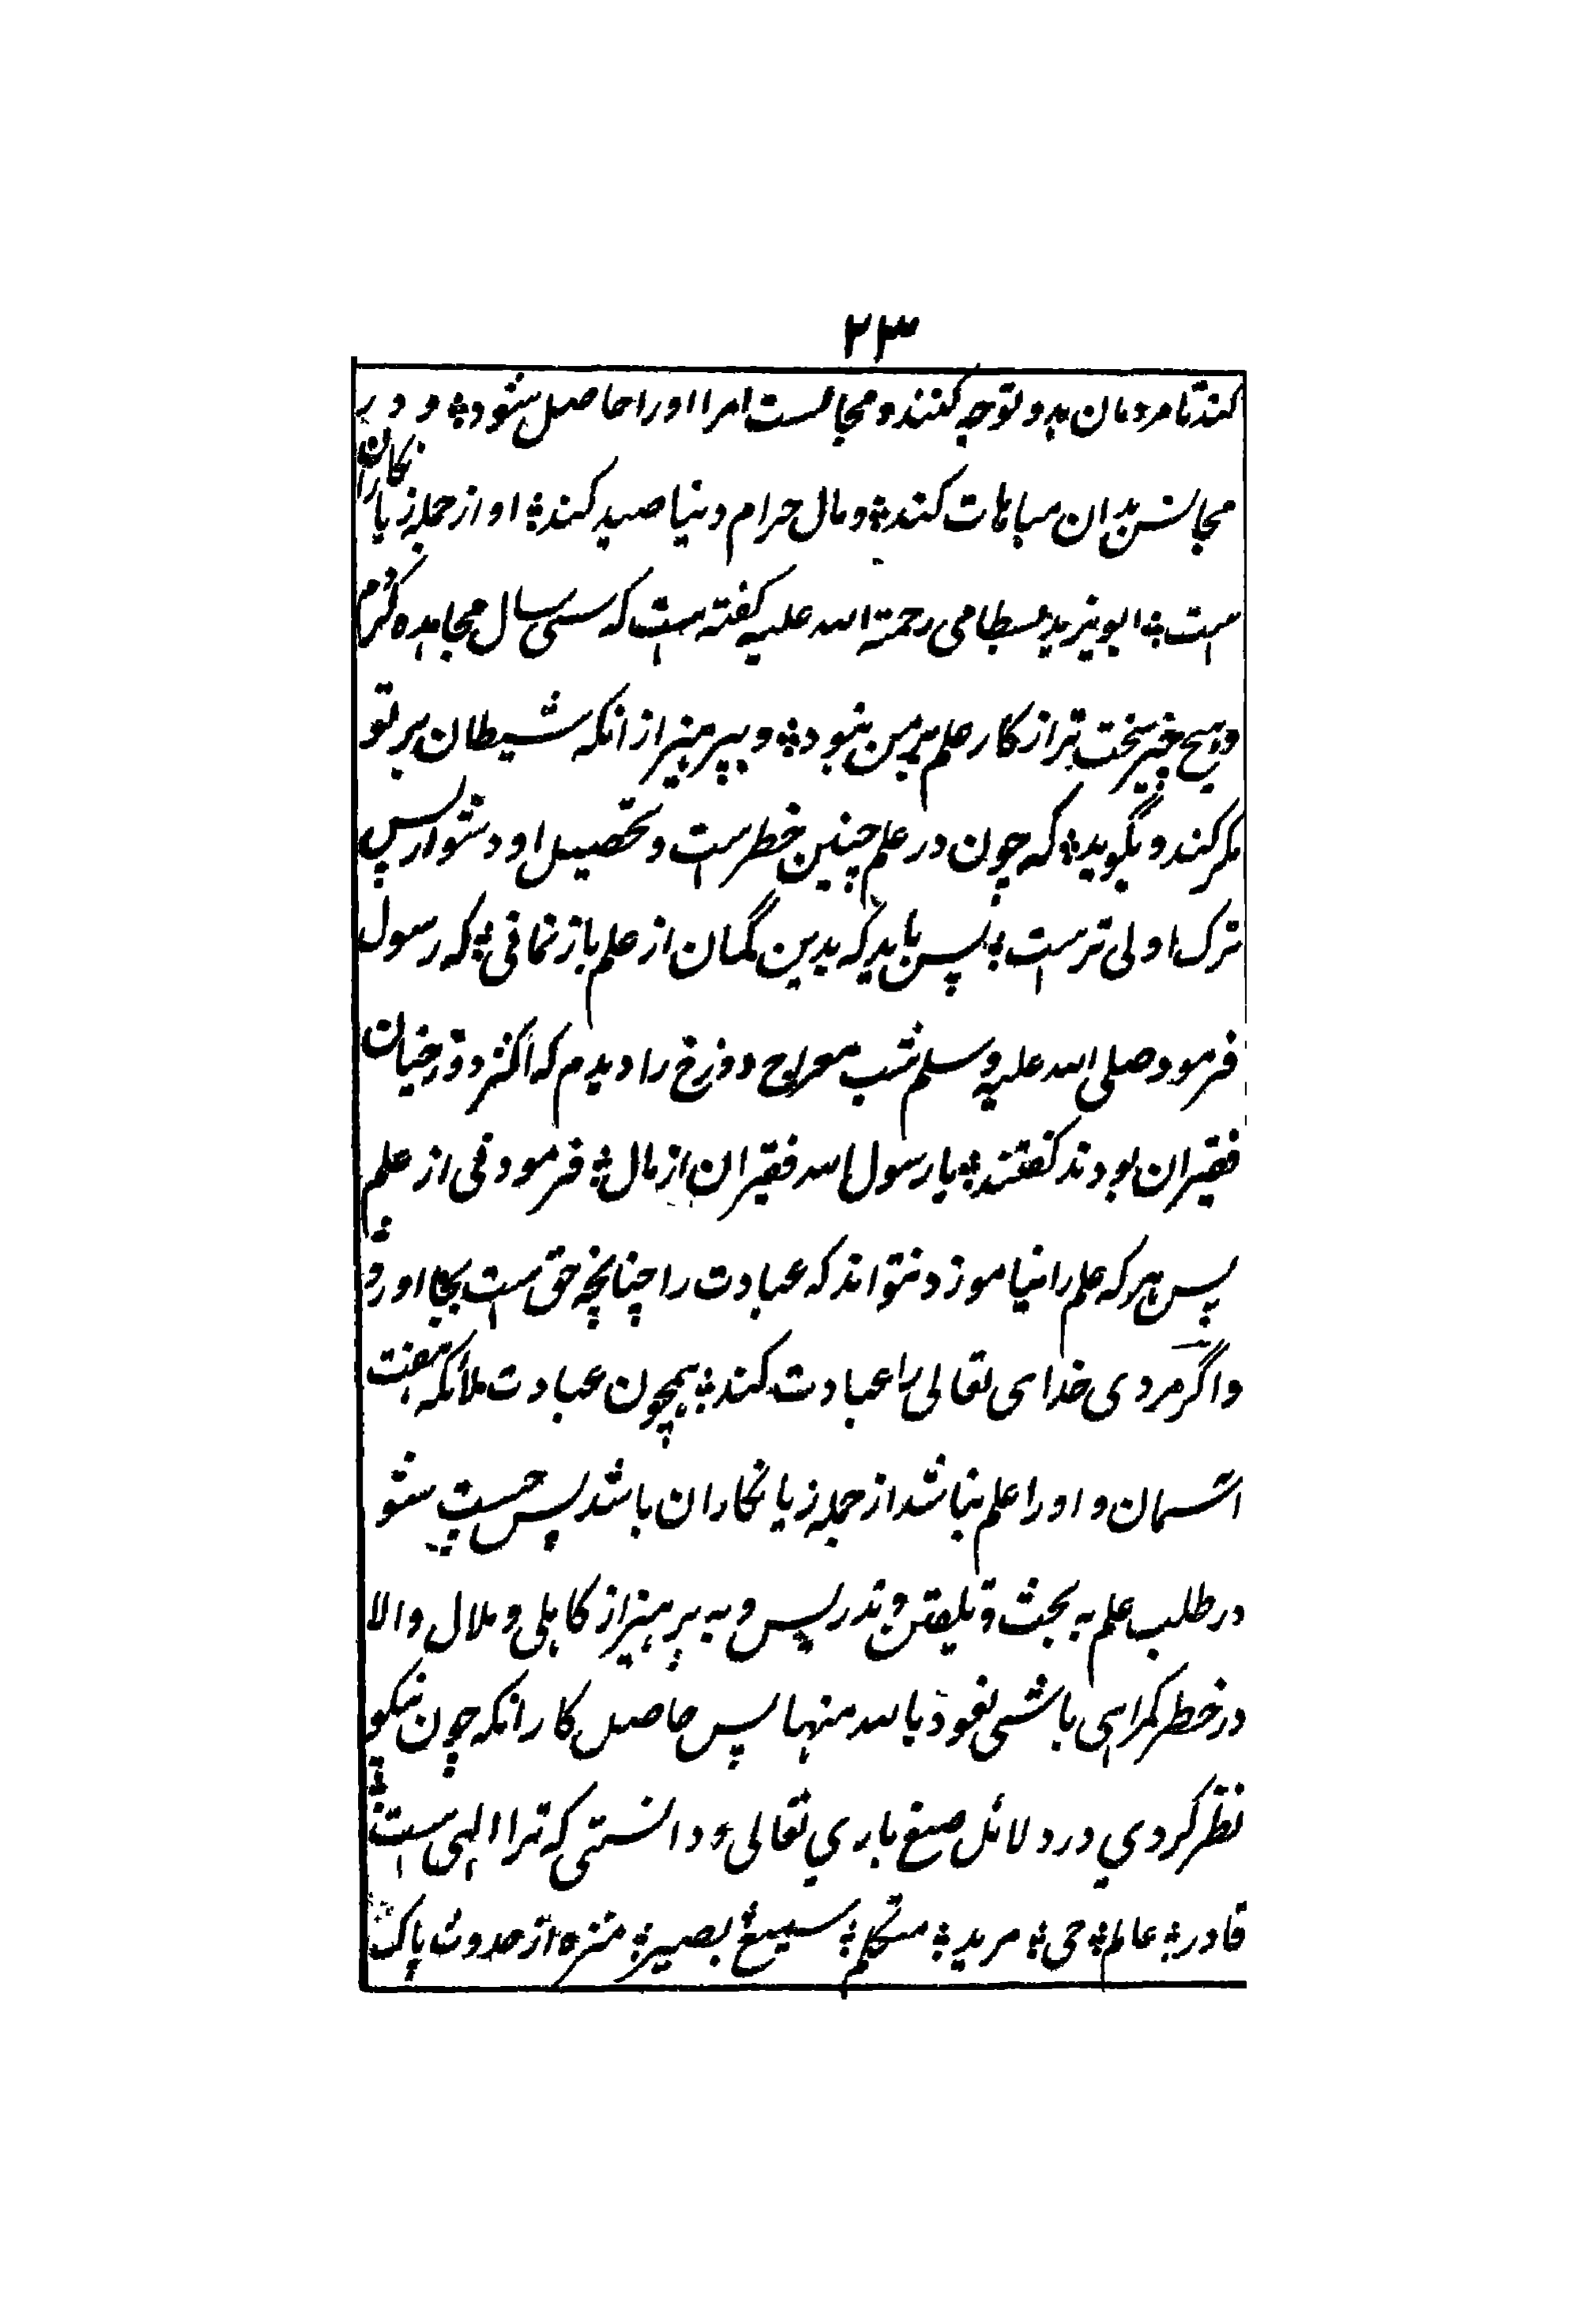 ۲۳
کند تا مردمان بدو توجه کنند و مجالست امرا اورا حاصل شود ؛ و در
مجالس بدان مباهات کند ؛ و مال حرام دنیا صید کند ؛ او از جمله زیانکاران
ست ؛ ابویزید بسطامی رحمة الله علیه گفته است که سی سال مجاهده کردم
و هیچ چیز سخت تر از کار علم بر من نبود ؛ و بپرهیز از انکه شیطان بر تو
مکر کند و بگوید ؛ که چون در علم چنین خطرست و تحصیل او دشوار پس
ترک اولی ترست ؛ پس باید که بدین گمان از علم باز نمانی ؛ که رسول
فرمود صلی الله علیه و سلم شب معراج دوزخ را دیدم که اکثر دوزخیان
فقیران بودند گفتند ؛ یا رسول الله فقیران از مال ؛ فرمود نی از علم ؛
پس هر که علم را نیاموزد نتواند که عبادت را چنانچه حق ست بجا اورد
واگر مردی خدای تعالی را عبادت کند ؛ همچون عبادت ملائکه هفت
اسمان و اورا علم نباشد از جمله زیانکاران باشد پس چست شو
در طلب علم به بحث و تلقین و تدریس و به پرهیز از کاهلی و ملال والا
در خطر گمراهی باشی نعوذ بالله منها پس حاصل کار انکه چون نیکو
نظر کردی در دلائل صنع باری تعالی و دانستی که ترا الهی ست ؛
قادر ؛ عالم ؛ حی ؛ مرید ؛ متکلم ؛ سمیع ؛ بصیر ؛ منزه از حدوث پاک